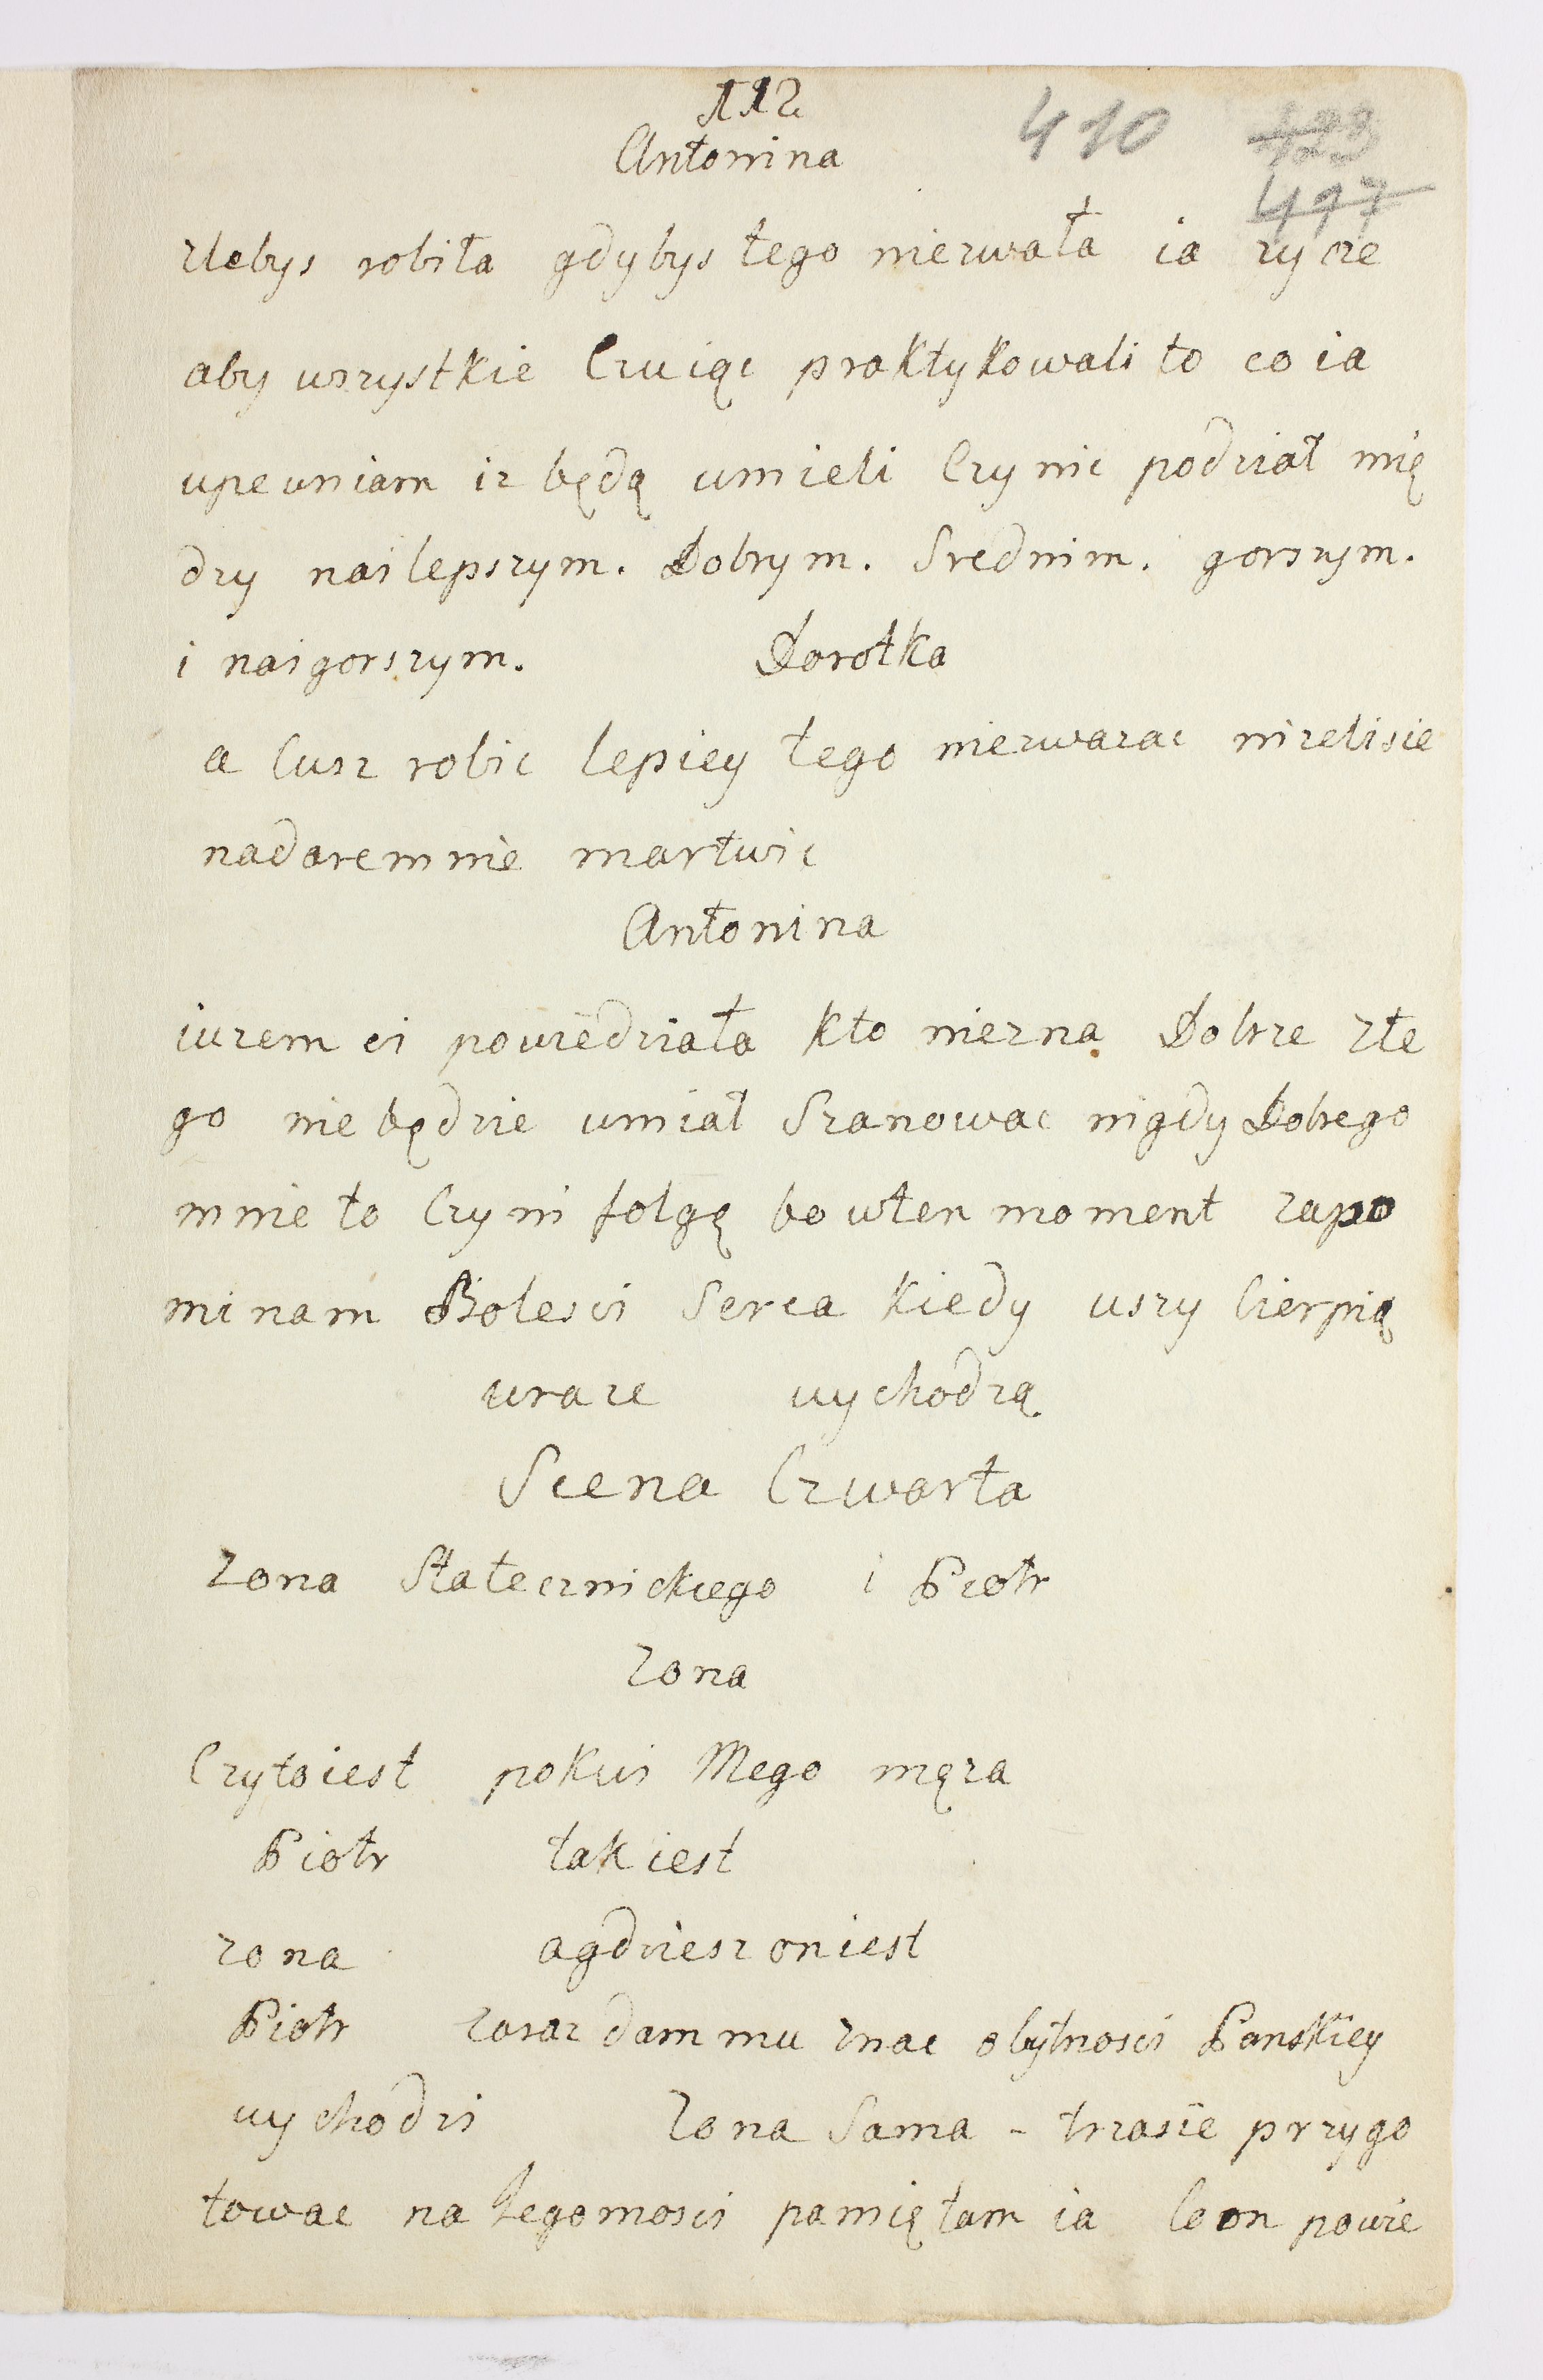 112
Antonina
410
423
417
zlebys robiła gdybys tego niezwała ia zycze
aby uszystkie Czuiąc praktykowali to co ia
upeuniam iz będą umieli Czynic podział mię
dzy nailepszym. Dobrym. Srednim. gorszym.
i naigorszym. Dorotka
a Cusz robic lepiey tego niezwazac nizelisie
nadaremnie martwic
Antonina
iuzem ci powiedziała kto niezna Dobrze złe
go nie będzie umiał Szanowac nigdy Dobrego
mnie to Czyni folgę bo wten moment zapo
minam Bolesci Serca kiedy uszy Cierpią
uraze uychodzą
Scena Czwarta
Zona Statecznickiego i Piotr
Zona
Czytoiest pokui Mego męza
Piotr takiest
zona agdziesz oniest
Piotr Zaraz dam mu znac obytnosci Panskiey
uychodzi Zona Sama - trzasie przygo
towac na Jegomosci pamiętam ia Coon powie